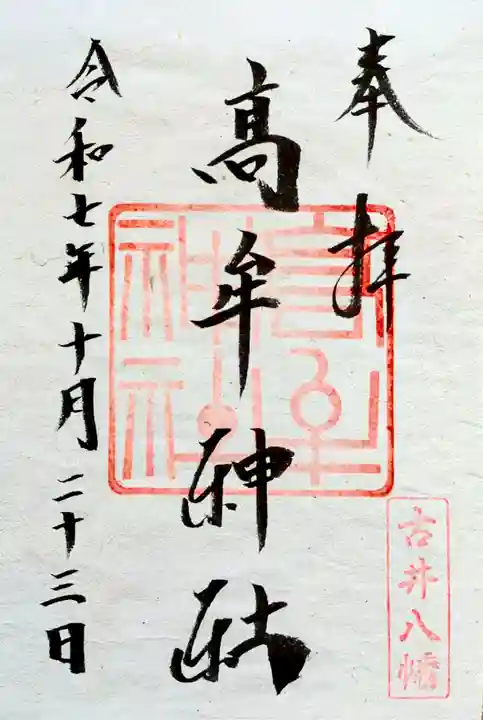 奉拝
古井八幡
高牟神社
高牟神社
令和七年十月二十三日